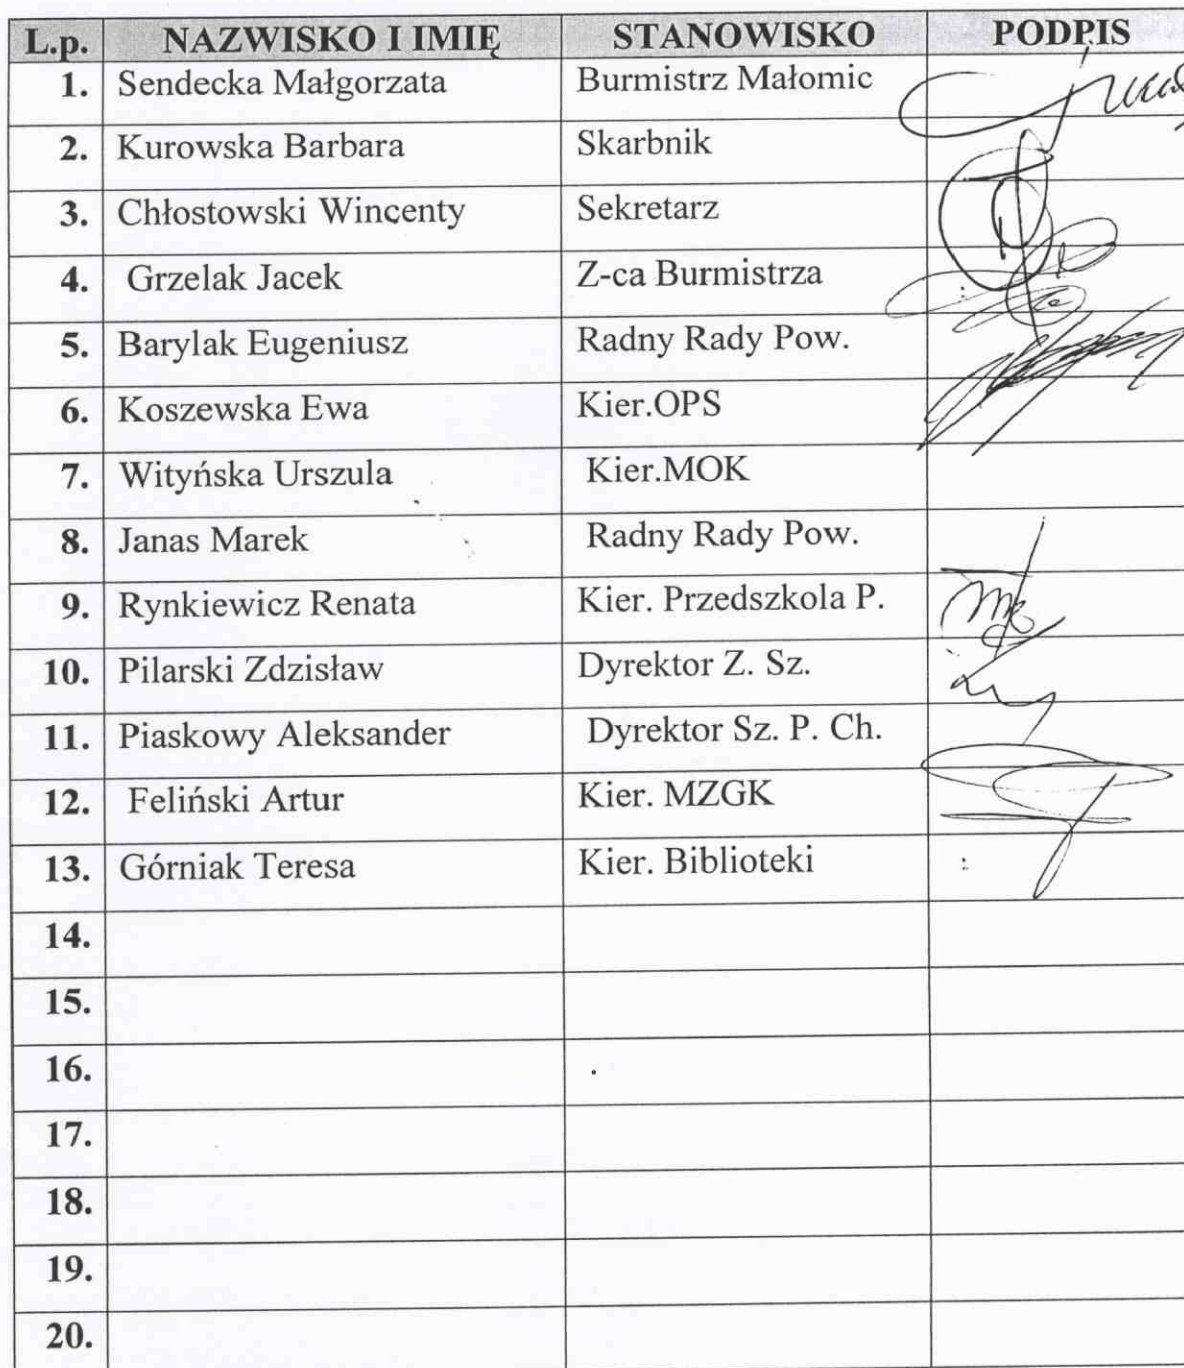 L.p. NAZWISKO I IMIĘ STANOWISKO PODPIS
1. Sendecka Małgorzata Burmistrz Małomic
2. Kurowska Barbara Skarbnik
3. Chłostowski Wincenty Sekretarz
4. Grzelak Jacek Z-ca Burmistrza
5. Barylak Eugeniusz Radny Rady Pow.
6. Koszewska Ewa Kier.OPS
7. Wityńska Urszula Kier.MOK
8. Janas Marek Radny Rady Pow.
9. Rynkiewicz Renata Kier. Przedszkola P.
10. Pilarski Zdzisław Dyrektor Z. Sz.
11. Piaskowy Aleksander Dyrektor Sz. P. Ch.
12. Feliński Artur Kier. MZGK
13. Górniak Teresa Kier. Biblioteki
14.
15.
16.
17.
18.
19.
20.